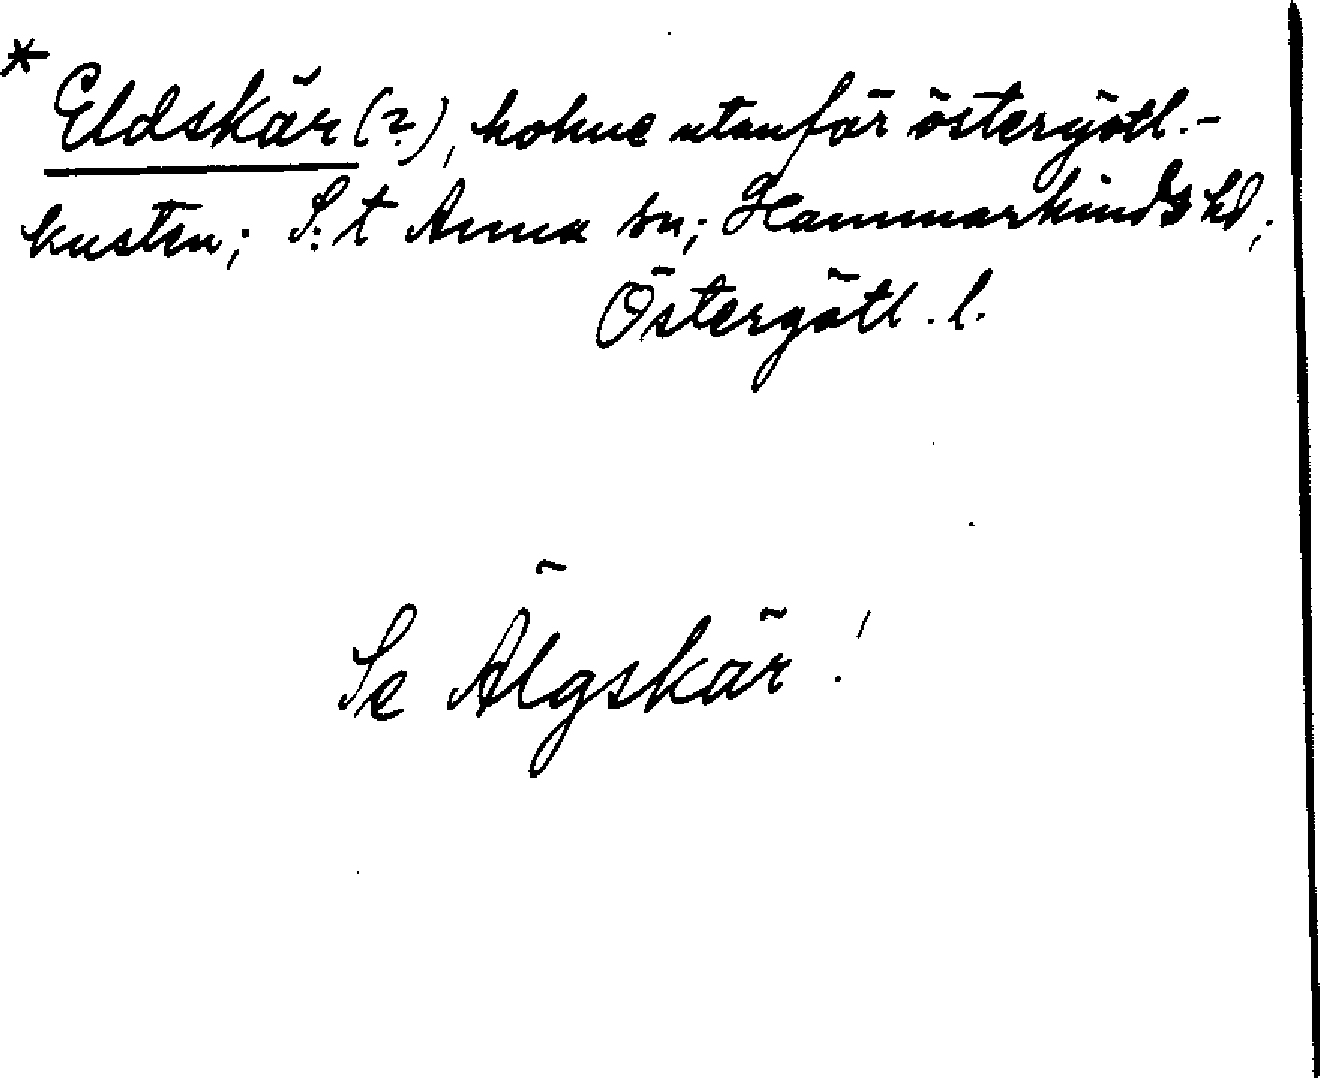 * Eldskär (?), holme utanför östergötl.-
kusten; S:t Anna sn; Hammarkinds hd;
Östergötl. l.
Se Älgskär!